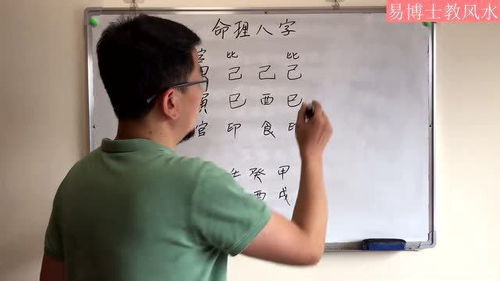 易博士教风水
命理八字
比 比
己 己 己
寅 巳 酉 巳
官 印 食
壬 癸 甲
酉 戌